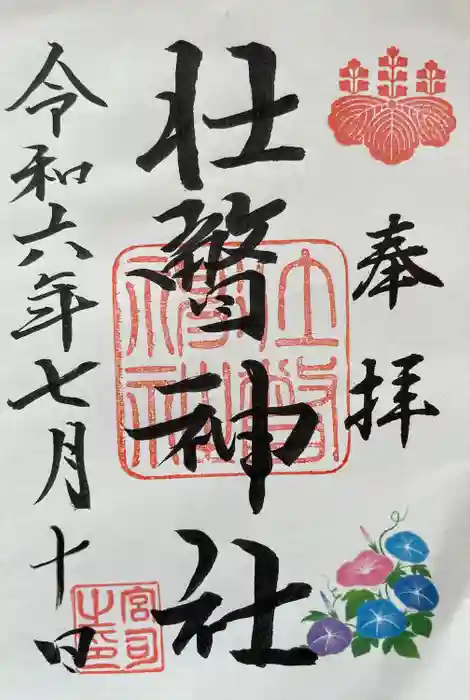 奉拝
壮瞥神社
令和六年七月十日
宮司之印